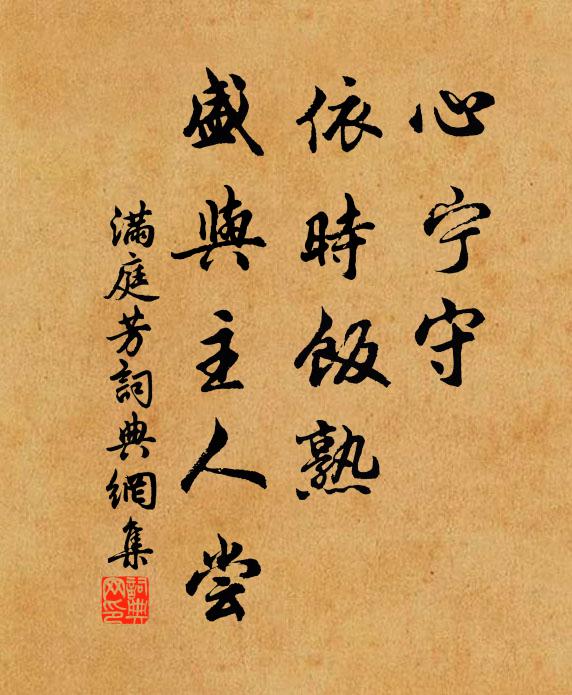 心宁守
依時飯熟
盛與主人尝
满庭芳詞典網集
詞典
网印